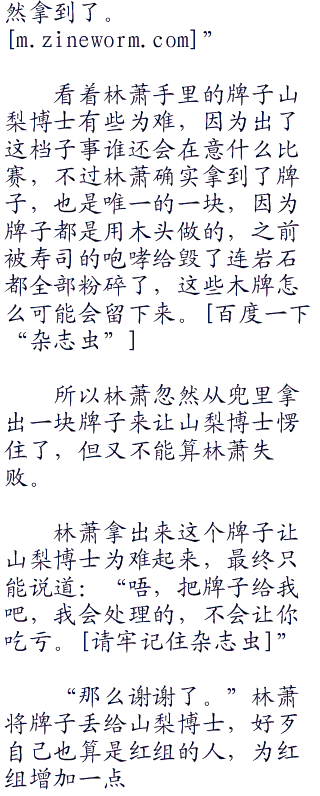 然拿到了。
[m.zineworm.com]”
看着林萧手里的牌子山
梨博士有些为难，因为出了
这档子事谁还会在意什么比
赛，不过林萧确实拿到了牌
子，也是唯一的一块，因为
牌子都是用木头做的，之前
被寿司的咆哮给毁了连岩石
都全部粉碎了，这些木牌怎
么可能会留下来。[百度一下
“杂志虫”]
所以林萧忽然从兜里拿
出一块牌子来让山梨博士愣
住了，但又不能算林萧失
败。
林萧拿出来这个牌子让
山梨博士为难起来，最终只
能说道：“唔，把牌子给我
吧，我会处理的，不会让你
吃亏。[请牢记住杂志虫]”
“那么谢谢了。”林萧
将牌子丢给山梨博士，好歹
自己也算是红组的人，为红
组增加一点